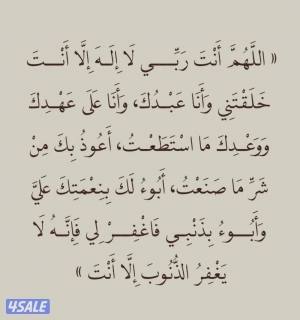 « اللَّهُمَّ أَنْتَ رَبِّـــــي لَا إِلَـهَ إِلَّا أَنْـــتَ
خَلَقْتَنِي وَأَنَا عَبْـدُكَ، وَأَنَا عَلَى عَهْـدِكَ
وَوَعْـدِكَ مَا اسْتَطَعْـتُ، أَعُوذُ بِكَ مِنْ
شَرِّ مَا صَنَعْتُ، أَبُوءُ لَكَ بِنِعْمَتِكَ عَلَيَّ
وَأَبُـــوءُ بِذَنْبِـي فَاغْفِـــرْ لِي فَإِنَّـــهُ لَا
يَغْفِرُ الذُّنُوبَ إِلَّا أَنْتَ »
4SALE